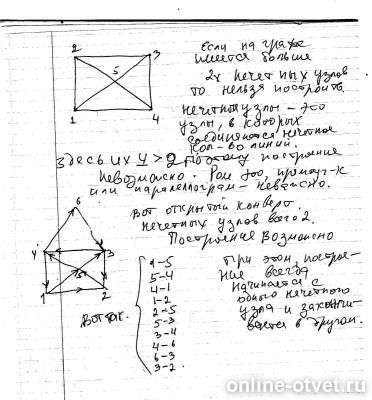 2 3
5
1 4
если на графе
имеется больше
2х нечетных узлов
то нельзя построить
нечетные узлы - это
узлы, в которых
соединяются нечетное
кол-во линий.
Здесь их 4 > 2 поэтому построение
невозможно.
или параллелограм - неважно.
Вот открытый конверт.
нечетных узлов всего 2.
Построение возможно
6
4 3
5
1 2
Вот так.
1-5
5-4
4-1
1-2
2-5
5-3
3-4
4-6
6-3
3-2
При этом, построе-
ние всегда
начинается с
одного нечетного
узла и заканчи-
вается в другом.
online-otvet.ru